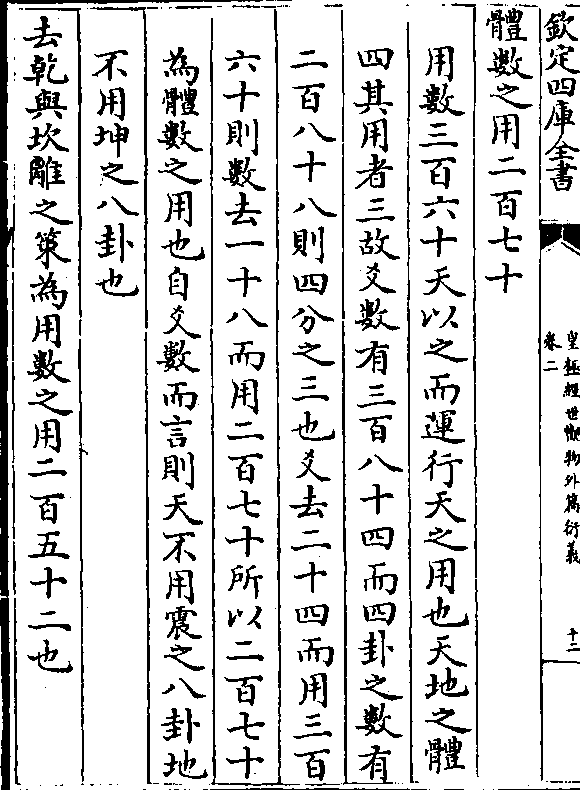 欽定四庫全書
皇極經世觀物外篇衍義
卷二
十二
體數之用二百七十
用數三百六十天以之而運行天之用也天地之體
四其用者三故爻數有三百八十四而四卦之數有
二百八十八則四分之三也爻去二十四而用三百
六十則數去一十八而用二百七十所以二百七十
為體數之用也自爻數而言則天不用震之八卦地
不用坤之八卦也
去乾與坎離之策為用數之用二百五十二也